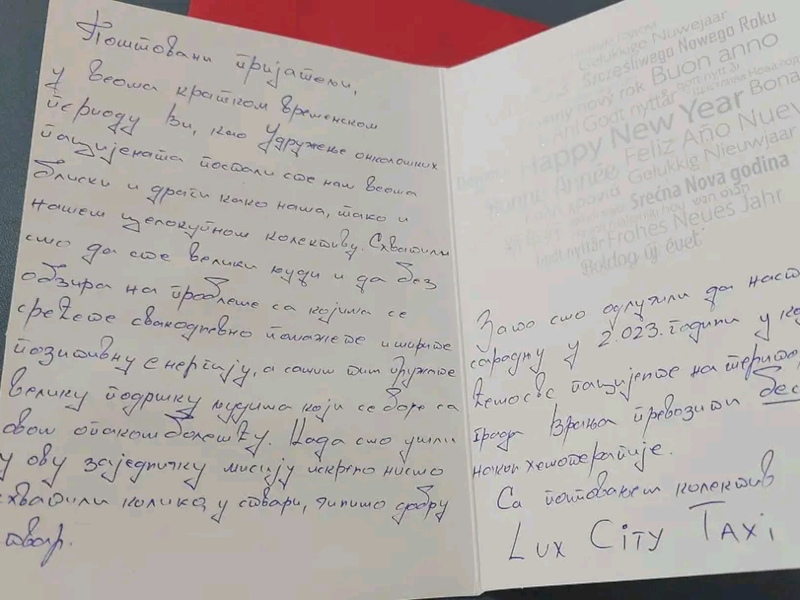 Поштовани пријатељи,
у веома кратком временском
периоду Ви, као Удружење онколошких
пацијената постали сте нам веома
блиски и драги како нама, тако и
нашем целокупном колективу. Схватили
смо да сте велики људи и да без
обзира на проблеме са којима се
срећете свакодневно помажете и ширите
позитивну енергију, а самим тим пружате
велику подршку људима који се боре са
овом опаком болешћу. Када смо ушли
у ову заједничку мисију искрено нисмо
схватили колико, у ствари, чинимо добру
ствар.
Gelukkig Nuwejaar
Szczęśliwego Nowego Roku
nový rok Buon anno
Godt nyttår
Happy New Year Bona
Feliz Año Nuevo
Bonne Année Gelukkig Nieuwjaar
Srećna Nova godina
Frohes Neues Jahr
Boldog új évet
Зато смо одлучили да наст
сарадњу у 2023. години у ко
ћемо све пацијенте на терито
града Врања превозити бес
након хемотерапије.
Са поштовањем колектив
LUX CITY TAXI